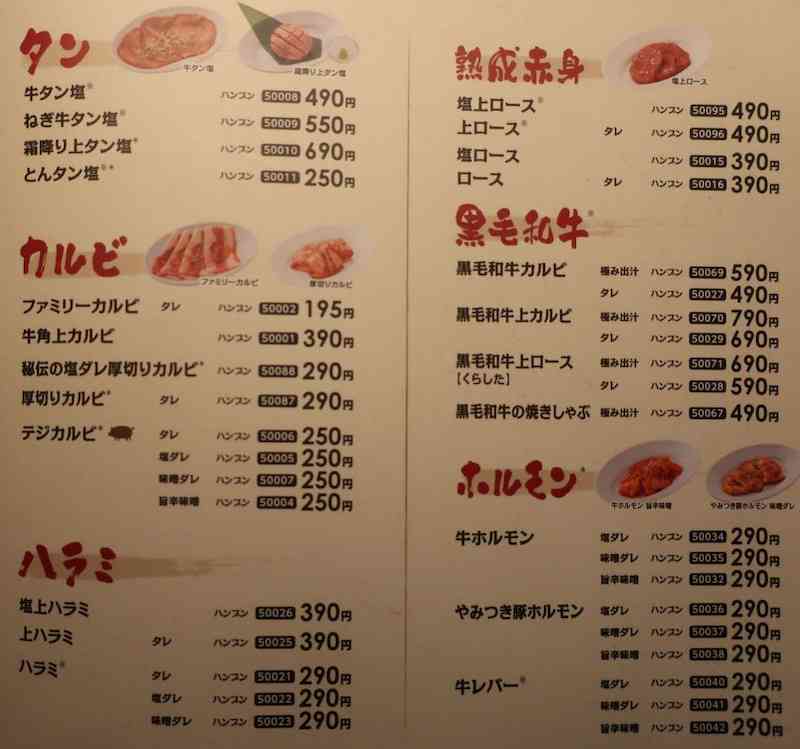 タン
牛タン塩
霜降り上タン塩
牛タン塩※ ハンブン 50008 490円
ねぎ牛タン塩※ ハンブン 50009 550円
霜降り上タン塩※ ハンブン 50010 690円
とんタン塩※* ハンブン 50011 250円
カルビ
ファミリーカルビ
厚切りカルビ
ファミリーカルビ タレ ハンブン 50002 195円
牛角上カルビ ハンブン 50001 390円
秘伝の塩ダレ厚切りカルビ* ハンブン 50088 290円
厚切りカルビ* タレ ハンブン 50087 290円
テジカルビ* タレ ハンブン 50006 250円
塩ダレ ハンブン 50005 250円
味噌ダレ ハンブン 50007 250円
旨辛味噌 ハンブン 50004 250円
ハラミ
塩上ハラミ ハンブン 50026 390円
上ハラミ タレ ハンブン 50025 390円
ハラミ※ タレ ハンブン 50021 290円
塩ダレ ハンブン 50022 290円
味噌ダレ ハンブン 50023 290円
熟成赤身
塩上ロース
塩上ロース※ ハンブン 50095 490円
上ロース※ タレ ハンブン 50096 490円
塩ロース ハンブン 50015 390円
ロース タレ ハンブン 50016 390円
黒毛和牛※
黒毛和牛カルビ 極み出汁 ハンブン 50069 590円
タレ ハンブン 50027 490円
黒毛和牛上カルビ 極み出汁 ハンブン 50070 790円
タレ ハンブン 50029 690円
黒毛和牛上ロース 極み出汁 ハンブン 50071 690円
【くらした】 タレ ハンブン 50028 590円
黒毛和牛の焼きしゃぶ 極み出汁 ハンブン 50067 490円
ホルモン*
牛ホルモン 旨辛味噌
やみつき豚ホルモン 味噌ダレ
牛ホルモン 塩ダレ ハンブン 50034 290円
味噌ダレ ハンブン 50035 290円
旨辛味噌 ハンブン 50032 290円
やみつき豚ホルモン 塩ダレ ハンブン 50036 290円
味噌ダレ ハンブン 50037 290円
旨辛味噌 ハンブン 50038 290円
牛レバー※ 塩ダレ ハンブン 50040 290円
味噌ダレ ハンブン 50041 290円
旨辛味噌 ハンブン 50042 290円